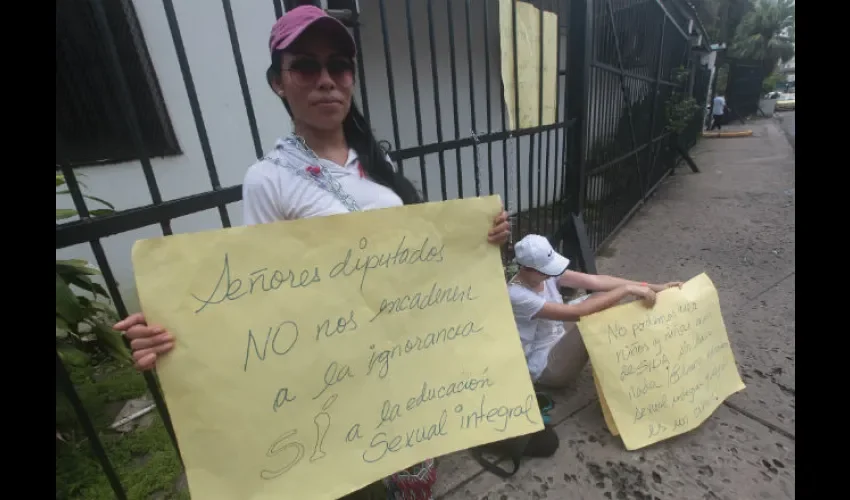 Señores diputados
NO nos encadenen
a la ignorancia
SÍ a la educación
Sexual integral
No podemos ver
niños y niñas con
SIDA sin hacer
nada
Sexual integral
es